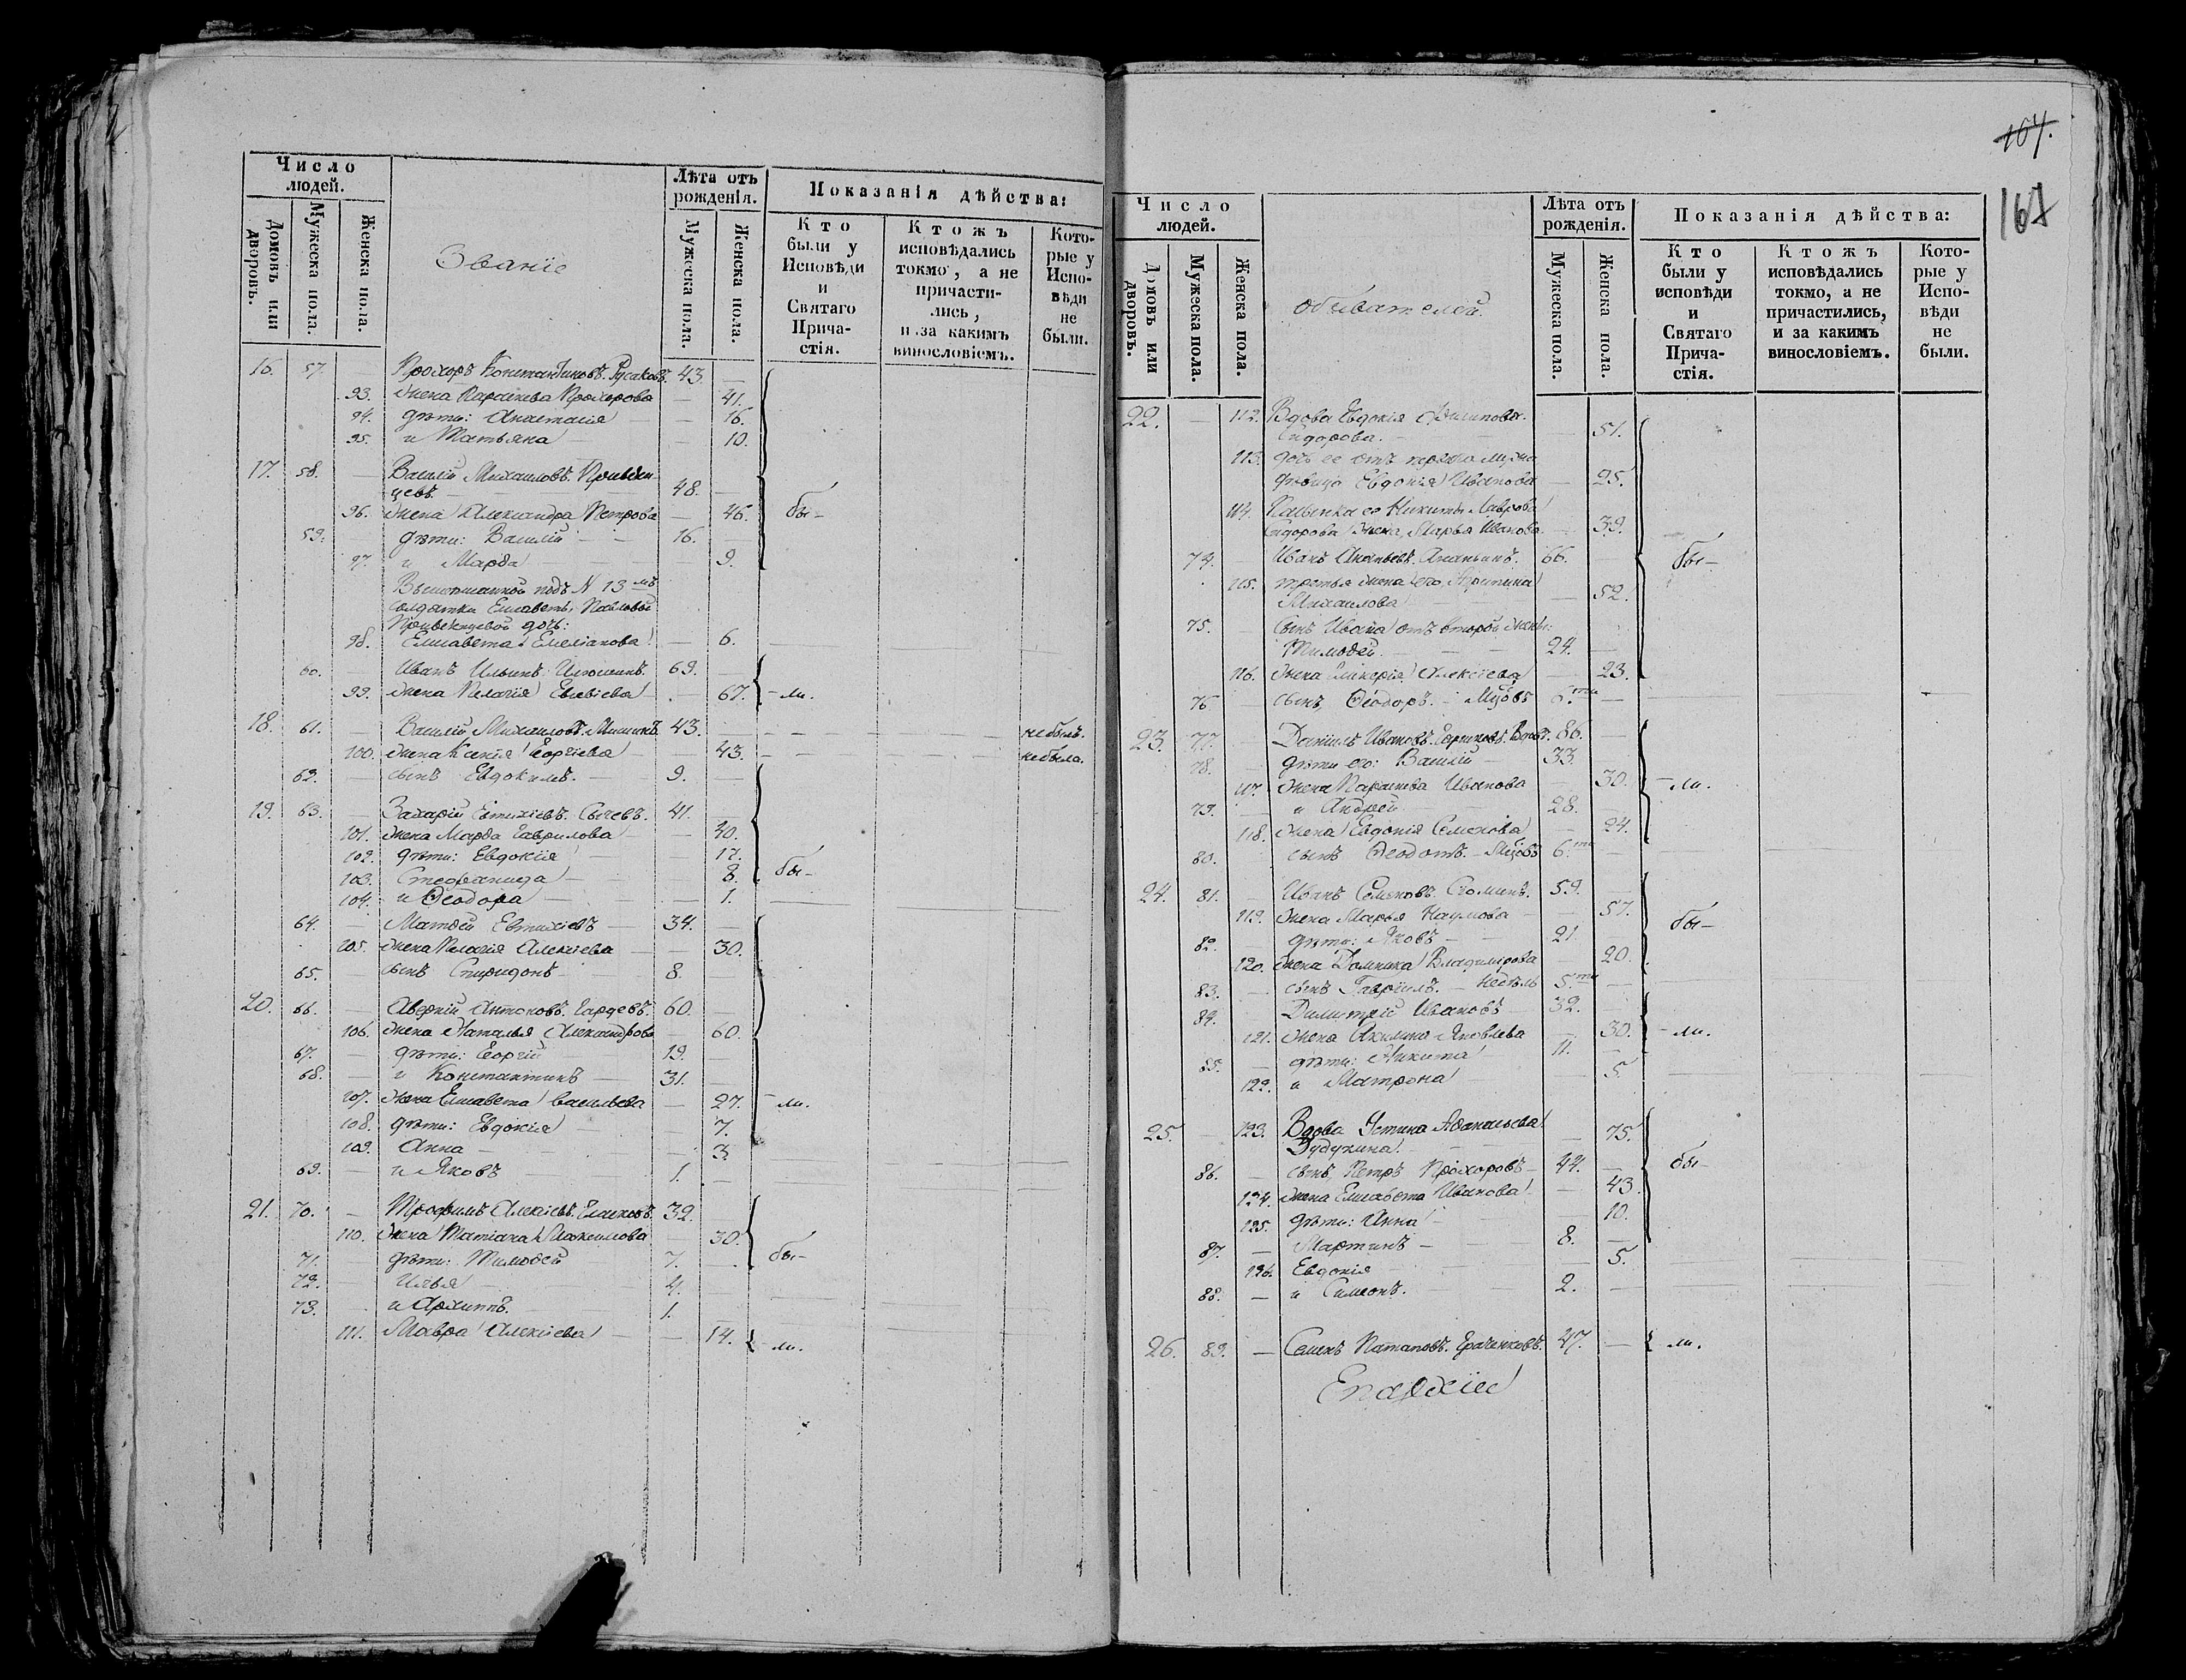 Число людей.
Домовъ или дворовъ.
Мужеска пола.
Женска пола.
Званіе
Лѣта отъ рожденія.
Мужеска пола.
Женска пола.
Показанія дѣйства:
Кто были у Исповѣди и Святаго Причастія.
Ктожъ исповѣдались токмо, а не причастились, и за какимъ винословіемъ.
Которые у Исповѣди не были.
16. 57. — Прохоръ Константиновъ Русаковъ. 43. —
93. жена Параскева Прохорова — 41.
94. дѣти: Анастасія — 16.
95. и Татьяна — 10.
17. 58. — Василій Михаиловъ
цевъ — 48. —
96. жена Александра Петрова — 46. бы-
59. — дѣти: Василій — 16. —
97. и Марѳа — 9.
подъ N 13 мъ
солдатки Елисаветы Павловой
дочь:
98. Елисавета Емеліанова — 6.
60. — Иванъ Ильинъ Илюшинъ. 69. —
99. жена Пелагія — 67. - ли.
18. 61. — Василій Михаиловъ Мишинъ. 43. — небылъ.
100. жена Ксенія Георгіева — 43. небыла.
62. — сынъ Евдокимъ. — 9. —
19. 63. — Захарій Евтихіевъ Сычевъ. 41. —
101. жена Марѳа Гаврилова — 40.
102. дѣти: Евдокія — 17.
103. Стефанида — 8. бы-
104. и Ѳеодора — 1.
64. — Матѳей Евтихіевъ — 34. —
105. жена Пелагія Алексіева — 30.
65. — сынъ Спиридонъ — 8.
20. 66. — Аверкій Антоновъ 60. —
106. жена Наталья Александрова — 60.
67. — дѣти: Георгій 19. —
68. — и Константинъ — 31. —
107. жена Елисавета Васильева — 27. - ли.
108. дѣти: Евдокія — 7.
109. Анна — 3.
69. — и Яковъ — 1. —
21. 70. — Трофимъ Алексіевъ 32. —
110. жена Татіана Максимова — 30.
71. — дѣти: Тимоѳей 7. — бы-
72. — Илья — 4. —
73. и Архиппъ. — 1.
111. Мавра Алексіева — 14. - ли.
164.
167
Число людей.
Домовъ или дворовъ.
Мужеска пола.
Женска пола.
обывателей.
Лѣта отъ рожденія.
Мужеска пола.
Женска пола.
Показанія дѣйства:
Кто были у исповѣди и Святаго Причастія.
Ктожъ исповѣдались токмо, а не причастились, и за какимъ винословіемъ.
Которые у Исповѣди не были.
22. — 112. Вдова Евдокія Филипова
Сидорова. — 51.
113. дочь ее отъ перваго мужа
дѣвица Евдокія Иванова — 25.
114. Пасынка ее Никиты Лаврова
Сидорова жена, Марья Иванова — 39.
74. — Иванъ Ананьинъ. 66. — бы-
115. третья жена его
Михаилова — 52.
75. сынъ Ивана отъ второй жены:
Тимоѳей. — 24. —
116. жена Гликерія Алексіева — 23.
76 — сынъ Ѳеодоръ. - Мцовъ —
23. 77. — Даніилъ Ивановъ 86. —
78. — дѣти его: Василій — 33.
117. жена Параскева Иванова 30. - ли.
79. — и Андрей — 28. —
118. жена Евдокія Семенова — 24.
80. сынъ Ѳеодотъ. - Мцовъ 6.ти —
24. 81. — Иванъ Семеновъ Сѳоминъ. 59. —
119. жена Марья Наумова — 57. бы-
82. — дѣти: Яковъ — 21. —
120. жена Домника Владимірова — 20.
83. — сынъ Гавріилъ. - Недѣль 5.ти —
84. Димитрій Ивановъ 32. —
121. жена Акилина Яковлева — 30. - ли.
85. — дѣти: Никита 11. —
122. и Матрона — 5.
25. — 123. Вдова Устина Аѳанасьева
— 75.
86. — сынъ, Петръ Прохоровъ — 44. — бы-
124. жена Елисавета Иванова — 43.
125. дѣти: Анна — 10.
87. — Мартинъ — 8. —
126. Евдокія — 5.
88. — и Симеонъ. — 2. —
26. 89. — Семенъ Потаповъ 47. — ли.